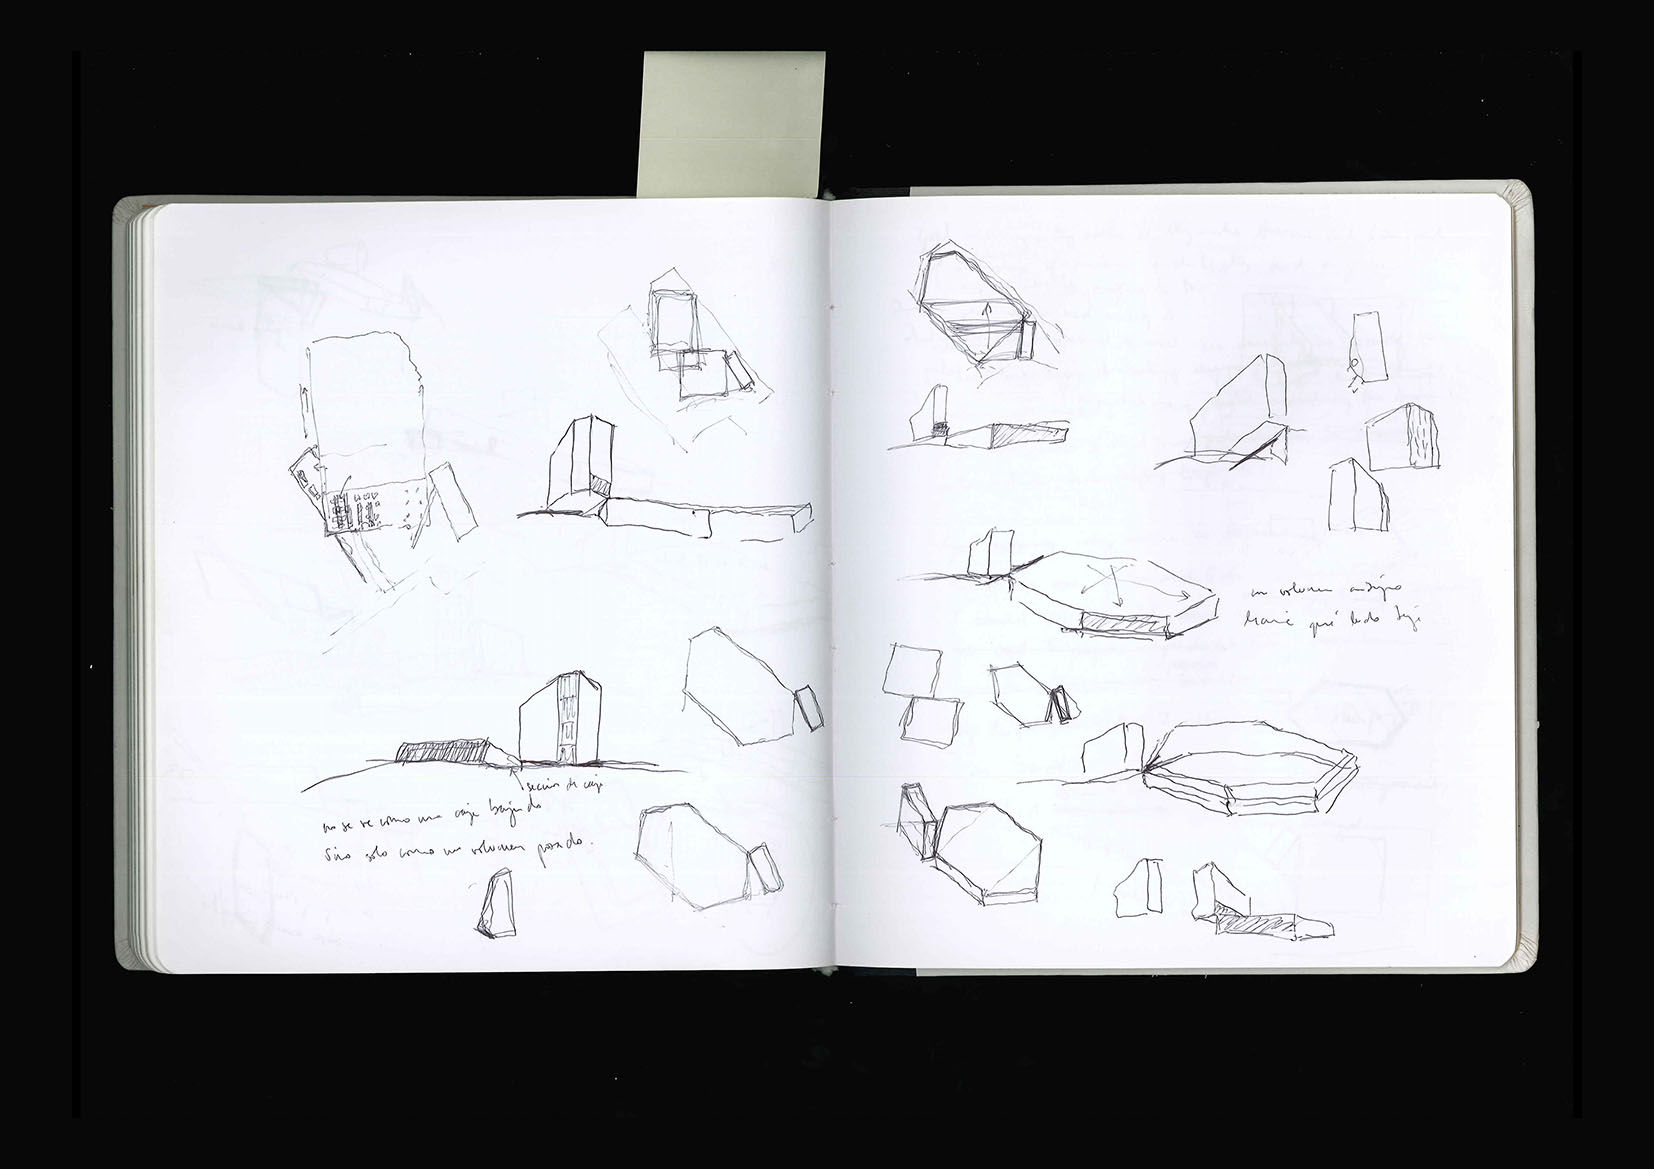 sección de caja
no se ve como una caja bajando
sino solo como un volumen posado.
un volumen
hacia qué lado